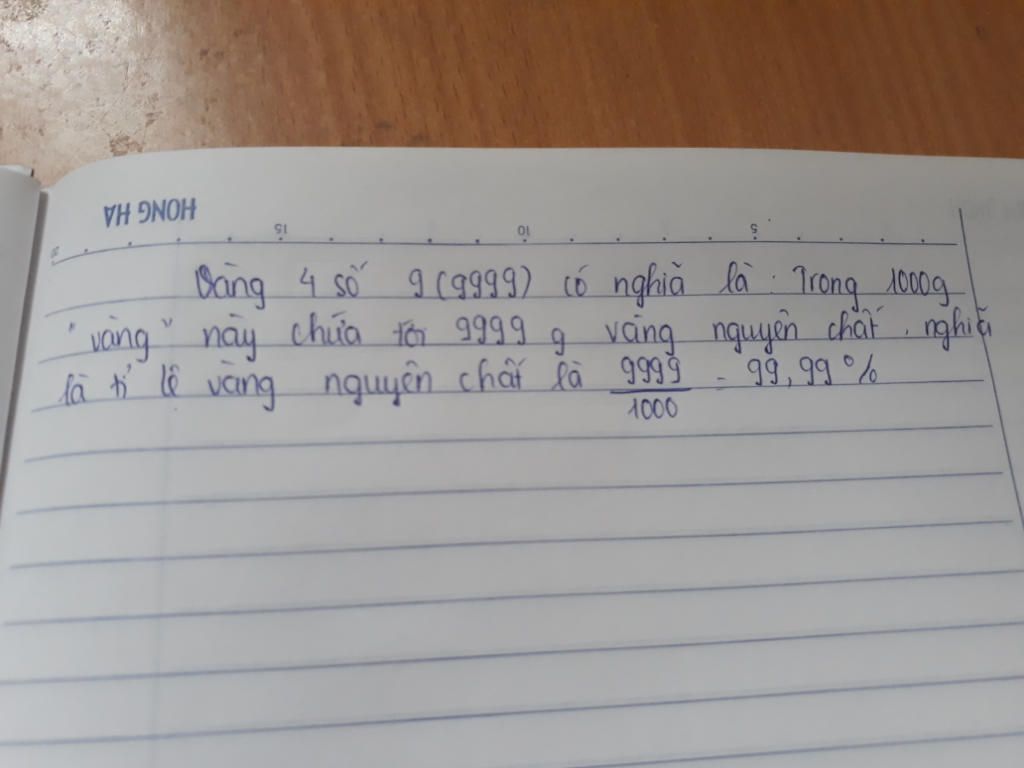 HONG HA
20 15 10 5
Vàng 4 số 9 (9999) có nghĩa là : Trong 1000g
"vàng" này chứa tới 9999 g vàng nguyên chất, nghĩa
là tỉ lệ vàng nguyên chất là 9999/1000 = 99,99 %